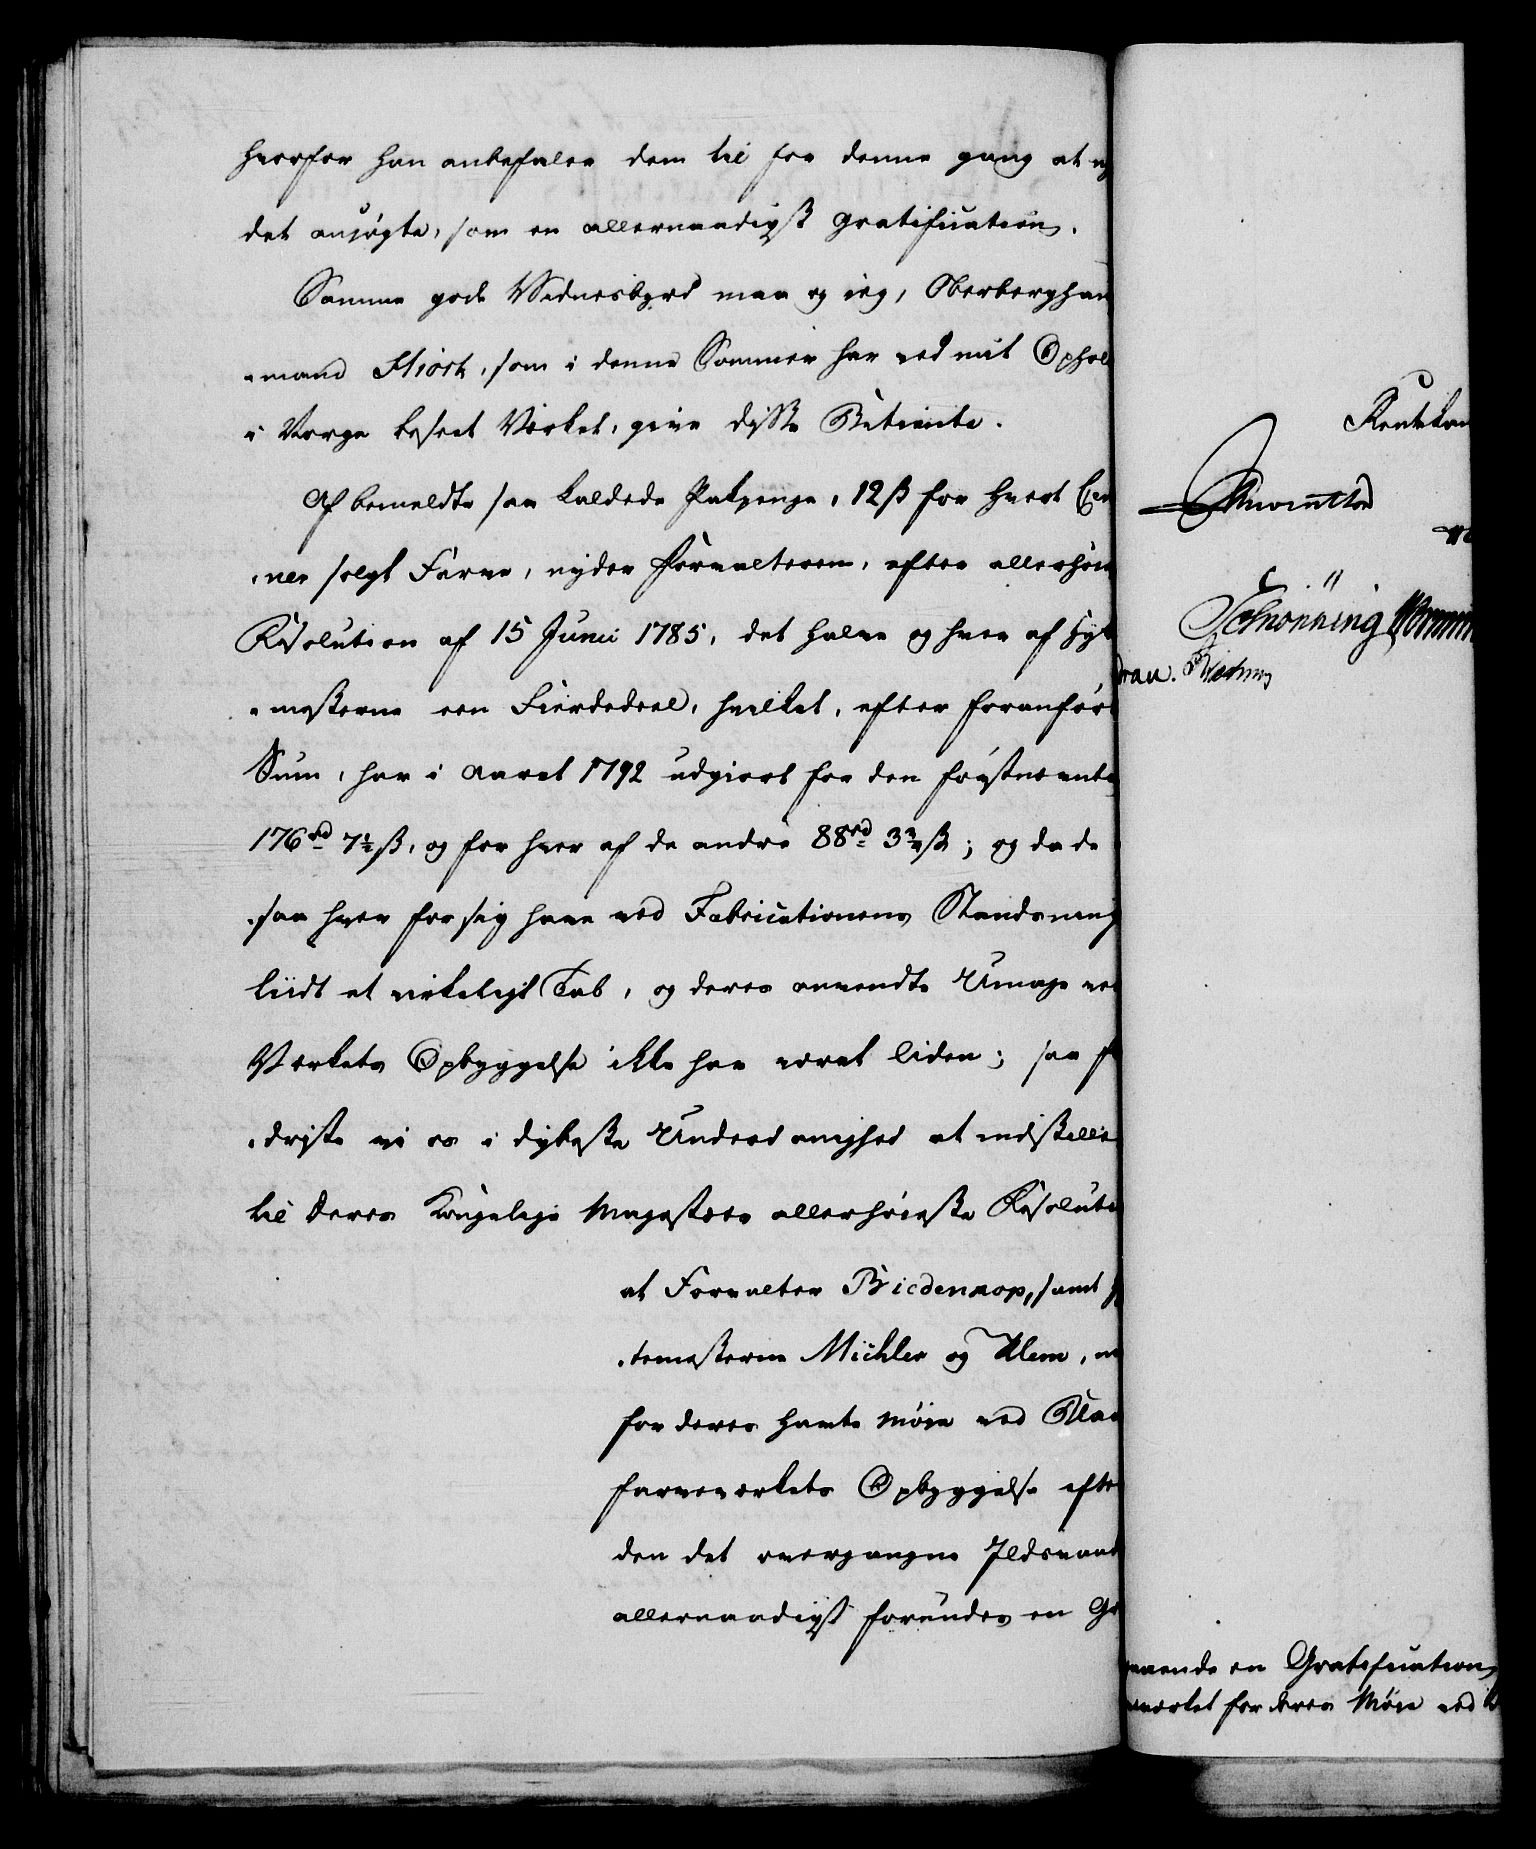 hvorfor han anbefaler dem til for denne gang at ny
det ansøgte, som en allernaadigst Gratification.
Samme gode Vidnesbyrd maa og ieg, Oberberghau
-mand Hiort, som i denne Sommer har ved mit Ophol
i Norge beseet Værket, give disse Betiente.
Af bemeldte saa kaldede Pakpenge, 12 ß for hvert Cen
-ner solgt Farve, nyder Forvalteren, efter allerhøie
Resolution af 15 Junii 1785, det halve og hver af Hyt
-mesterne een Fierdedeel, hvilket, efter foranført
Sum, har i Aaret 1792 udgiort for den førstnævnte
176 rd 7½ ß, og for hver af de andre 88 rd 3¾ ß; og da de
saa hver for sig have ved Fabricationens Standsning
liidt et virkeligt Tab, og deres anvendte Umage ved
Værkets Opbyggelse ikke har været liden; saa f
-driste vi os i dybeste Underdanighed at indstille
til Deres Kongelige Majestæts allerhøieste Resoluti
at Forvalter Biedenkop, samt H
-temesterne Michler og Klem,
for deres havte Møje ved Blaa
farveværkets Opbyggelse efte
den det overgangne Ildsvaad
allernaadigst forundes en Gr
Rentekam
Schönning
gaaende en Gratification
værket for deres Møje ved